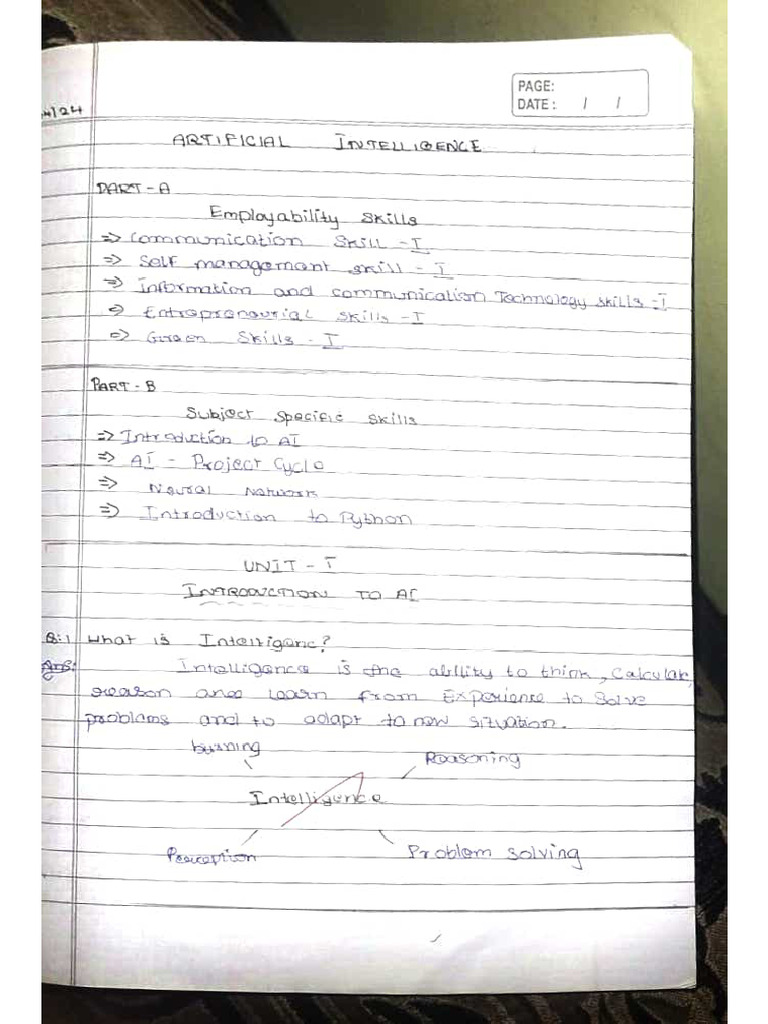 PAGE:
DATE: / /
4/24
ARTIFICIAL INTELLIGENCE
PART-A
Employability Skills
=> Communication Skill -I
=> Self management skill -I
=> Information and communication Technology skills -I
=> Entrepreneurial skills -I
=> Green Skills -I
PART-B
Subject Specific Skills
=> Introduction to AI
=> AI - Project Cycle
=> Neural Network
=> Introduction to Python
UNIT - I
INTRODUCTION TO AI
Q:1 What is Intelligenc?
Ans: Intelligence is the ability to think, Calculate,
reason and learn from Experience to Solve
problems and to adapt to new situation.
Reasoning
Intelligence
Perception Problem solving